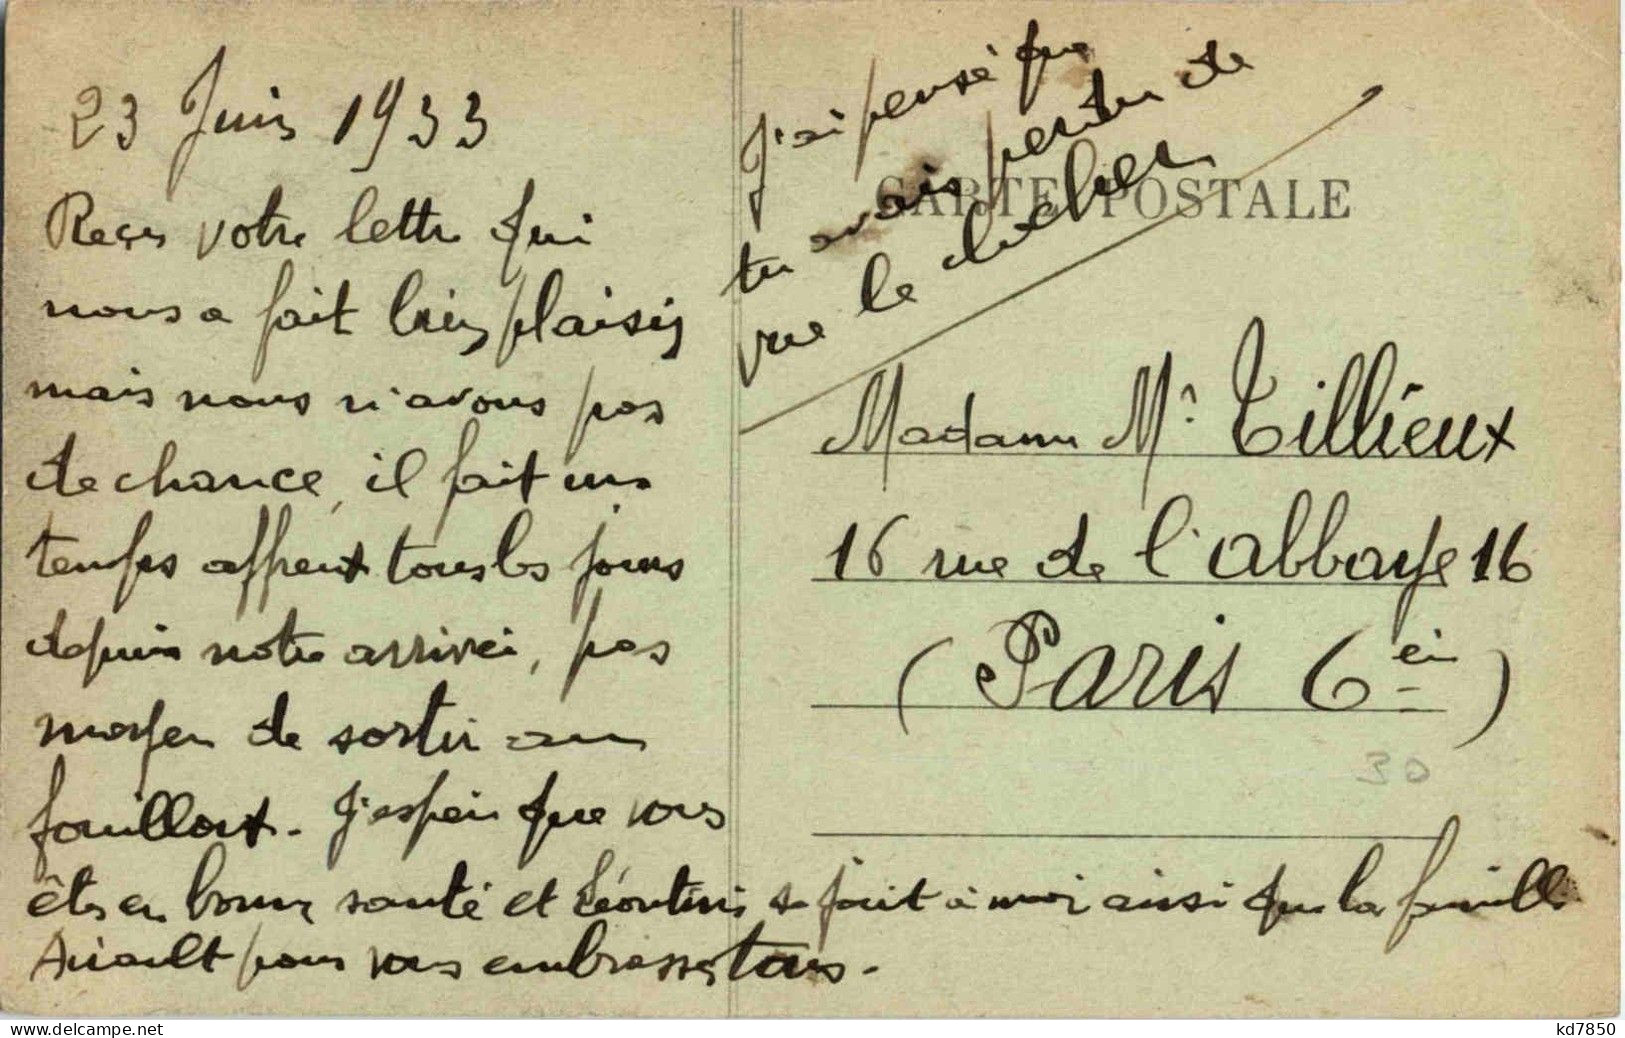 23 Juin 1933
Reçu votre lettre qui
nous a fait bien plaisir
mais nous n'avons pas
de chance, il fait un
temps affreux tous les jours
depuis notre arrivée, pas
moyen de sortir au
fouillout. J'espère que vous
êtes en bonne santé et Léontine se joint à moi ainsi que la famille
Airault pour vous embrasser tous.
J'ai pensé que
tu avais perdu de
vue le clocher
CARTE POSTALE
Madame Mce Tillieux
16 rue de l'abbaye 16
(Paris 6e)
30
kd7850
www.delcampe.net